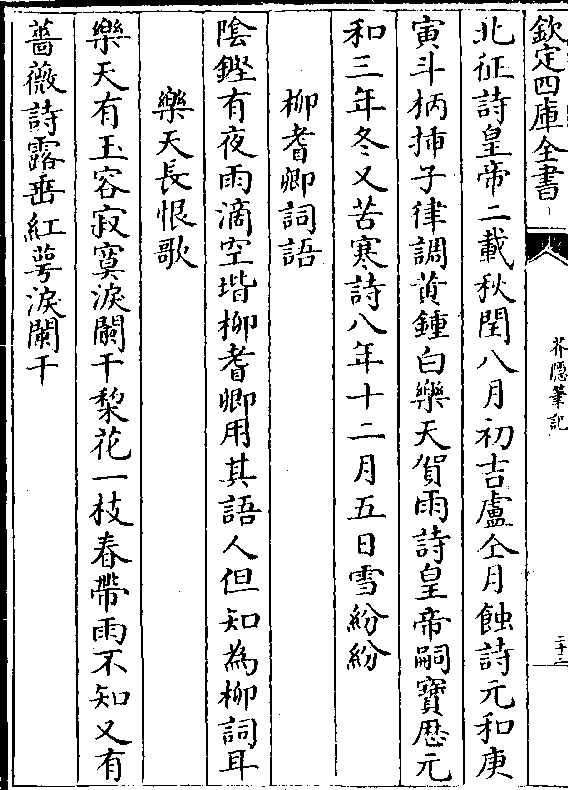 欽定四庫全書
芥隱筆記
二十二
北征詩皇帝二載秋閏八月初吉盧仝月蝕詩元和庚
寅斗柄揷子律調黄鍾白樂天賀雨詩皇帝嗣寶厯元
和三年冬又苦寒詩八年十二月五日雪紛紛
柳耆卿詞語
陰鏗有夜雨滴空堦柳耆卿用其語人但知為柳詞耳
樂天長恨歌
樂天有玉容寂寞淚闌干棃花一枝春帶雨不知又有
薔薇詩露垂紅萼淚闌干